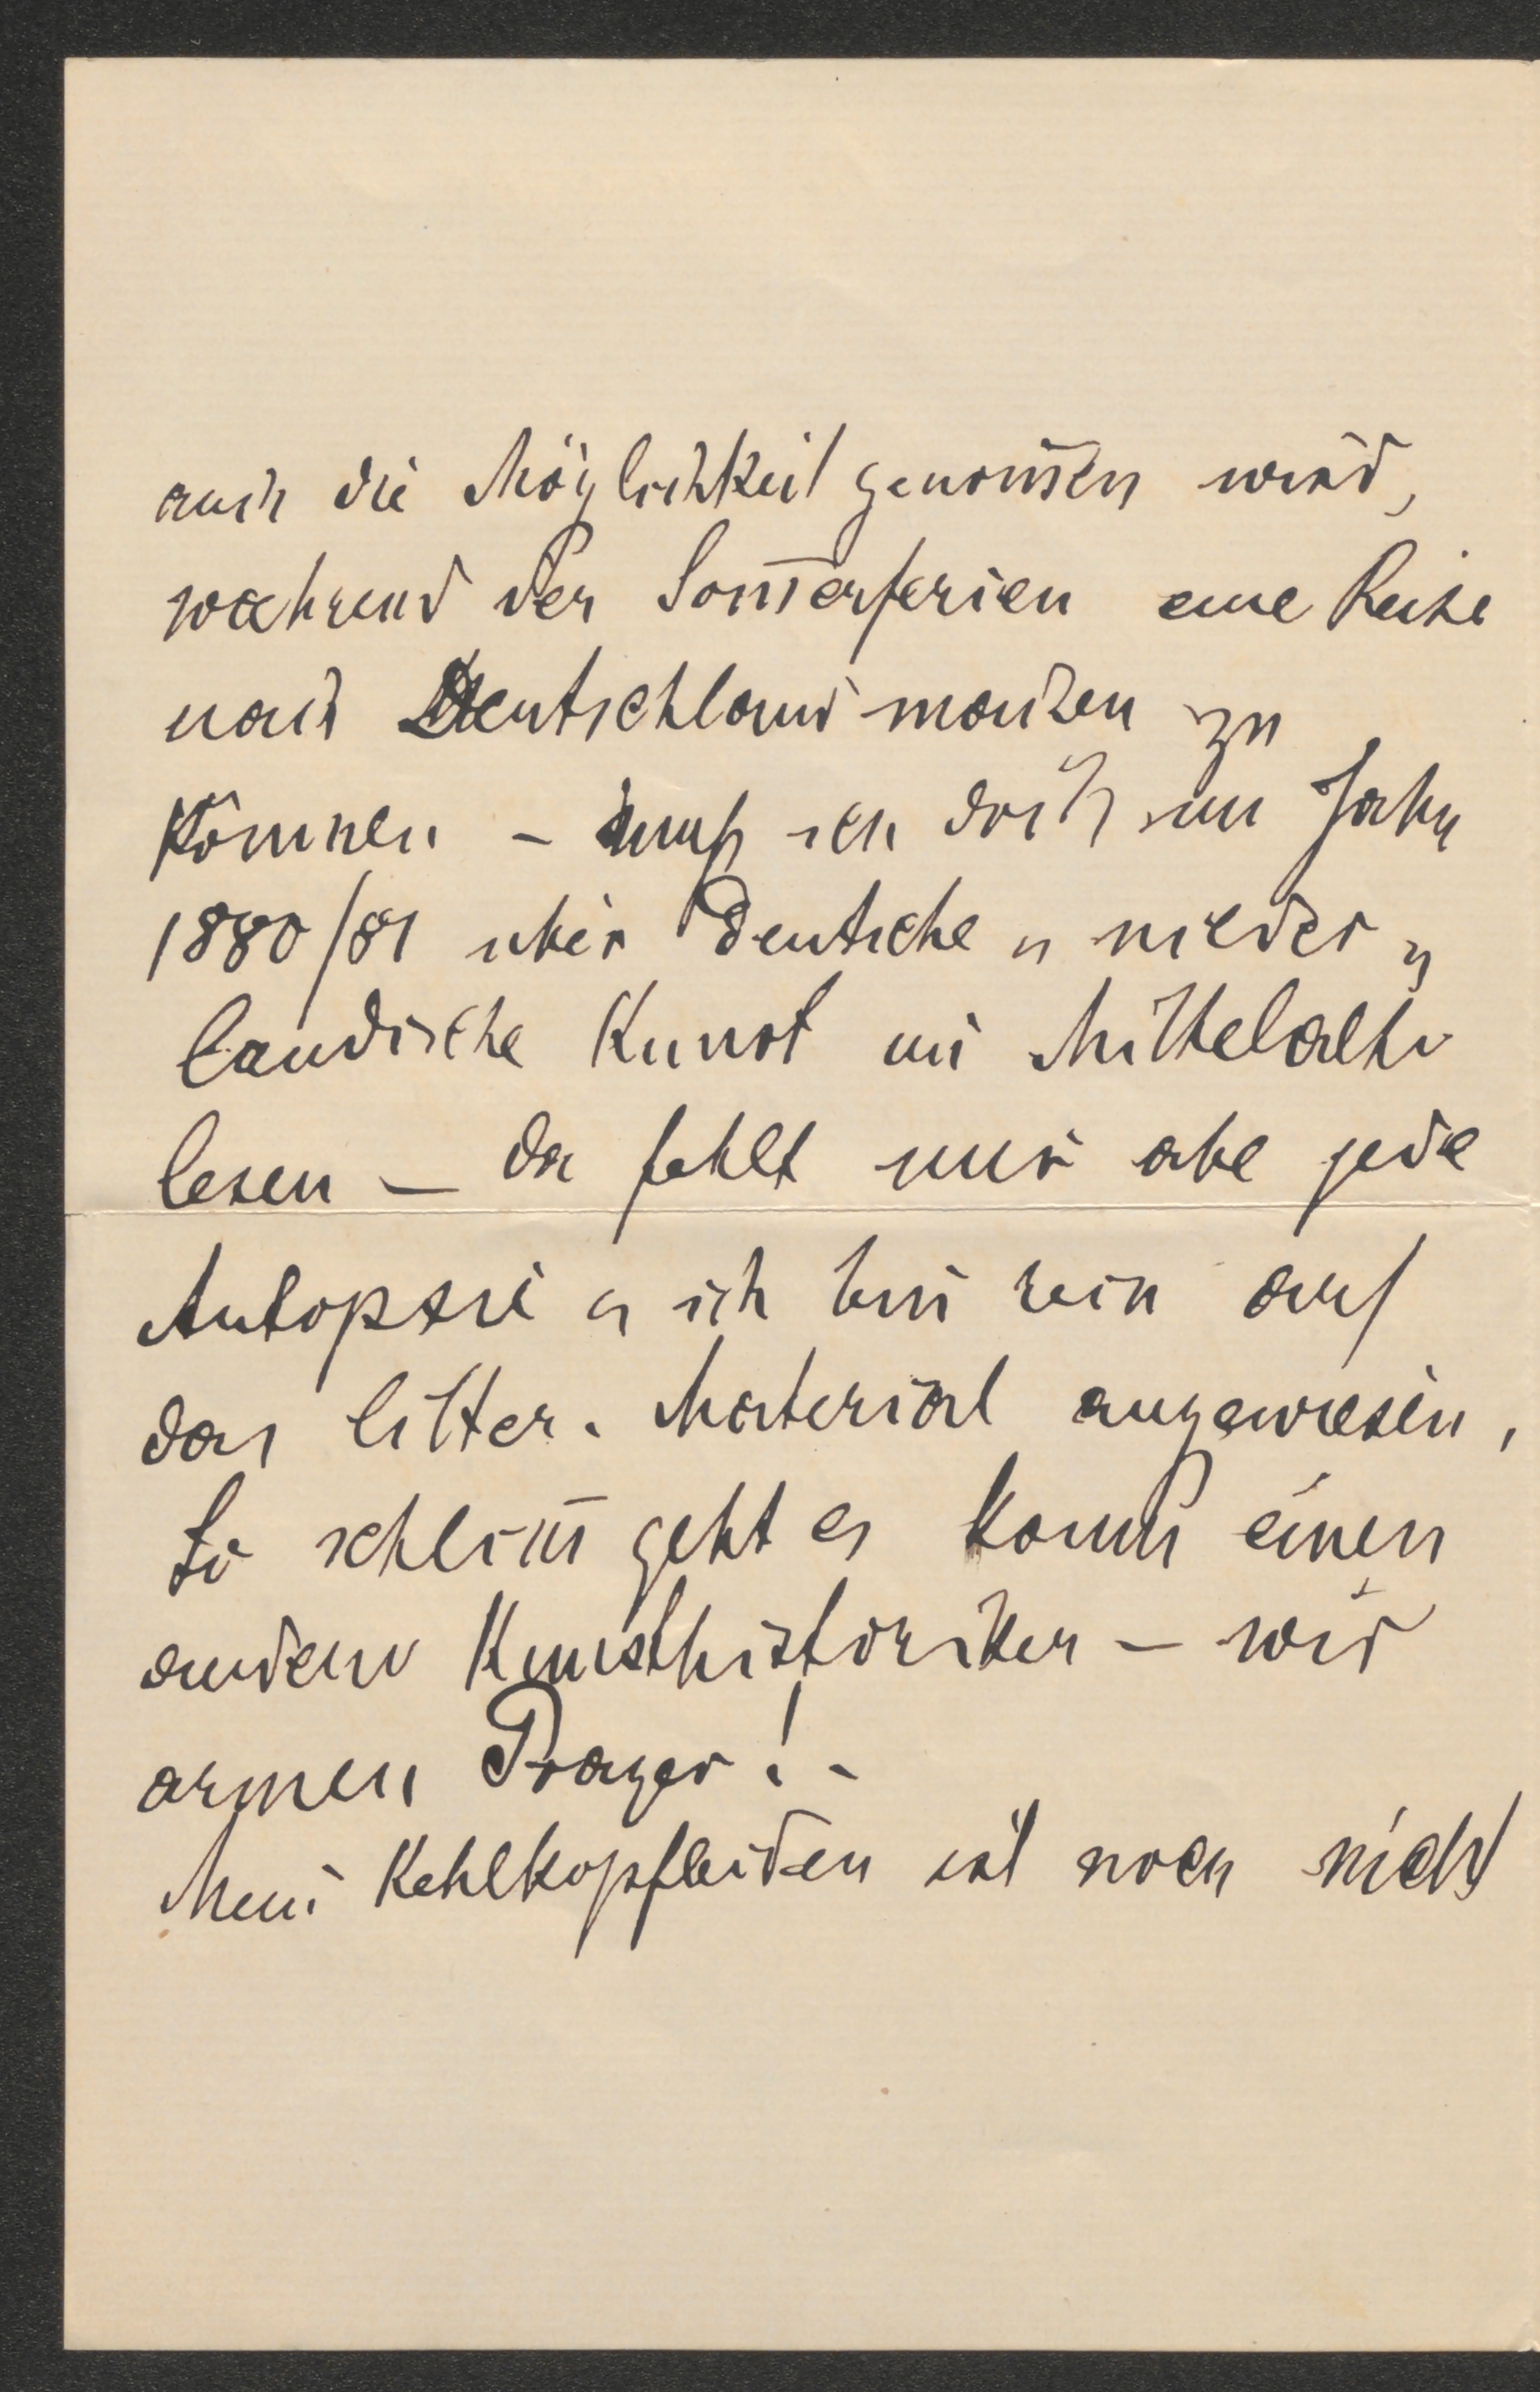 auch die Möglichkeit genom̅en wird,
während der Som̅erferien eine Reise
nach Deutschland machen zu
können – muß ich doch im Jahr
1880/81 über deutsche u nieder„
ländische Kunst im Mittelalter
lesen – da fehlt mir aber jede
Autopsie u ich bin rein auf
das litter. Material angewiesen,
So schlim̅ geht es kaum einen
andern Kunsthistoriker – wir
armen Prager! –
Mein Kehlkopfleiden ist noch nicht